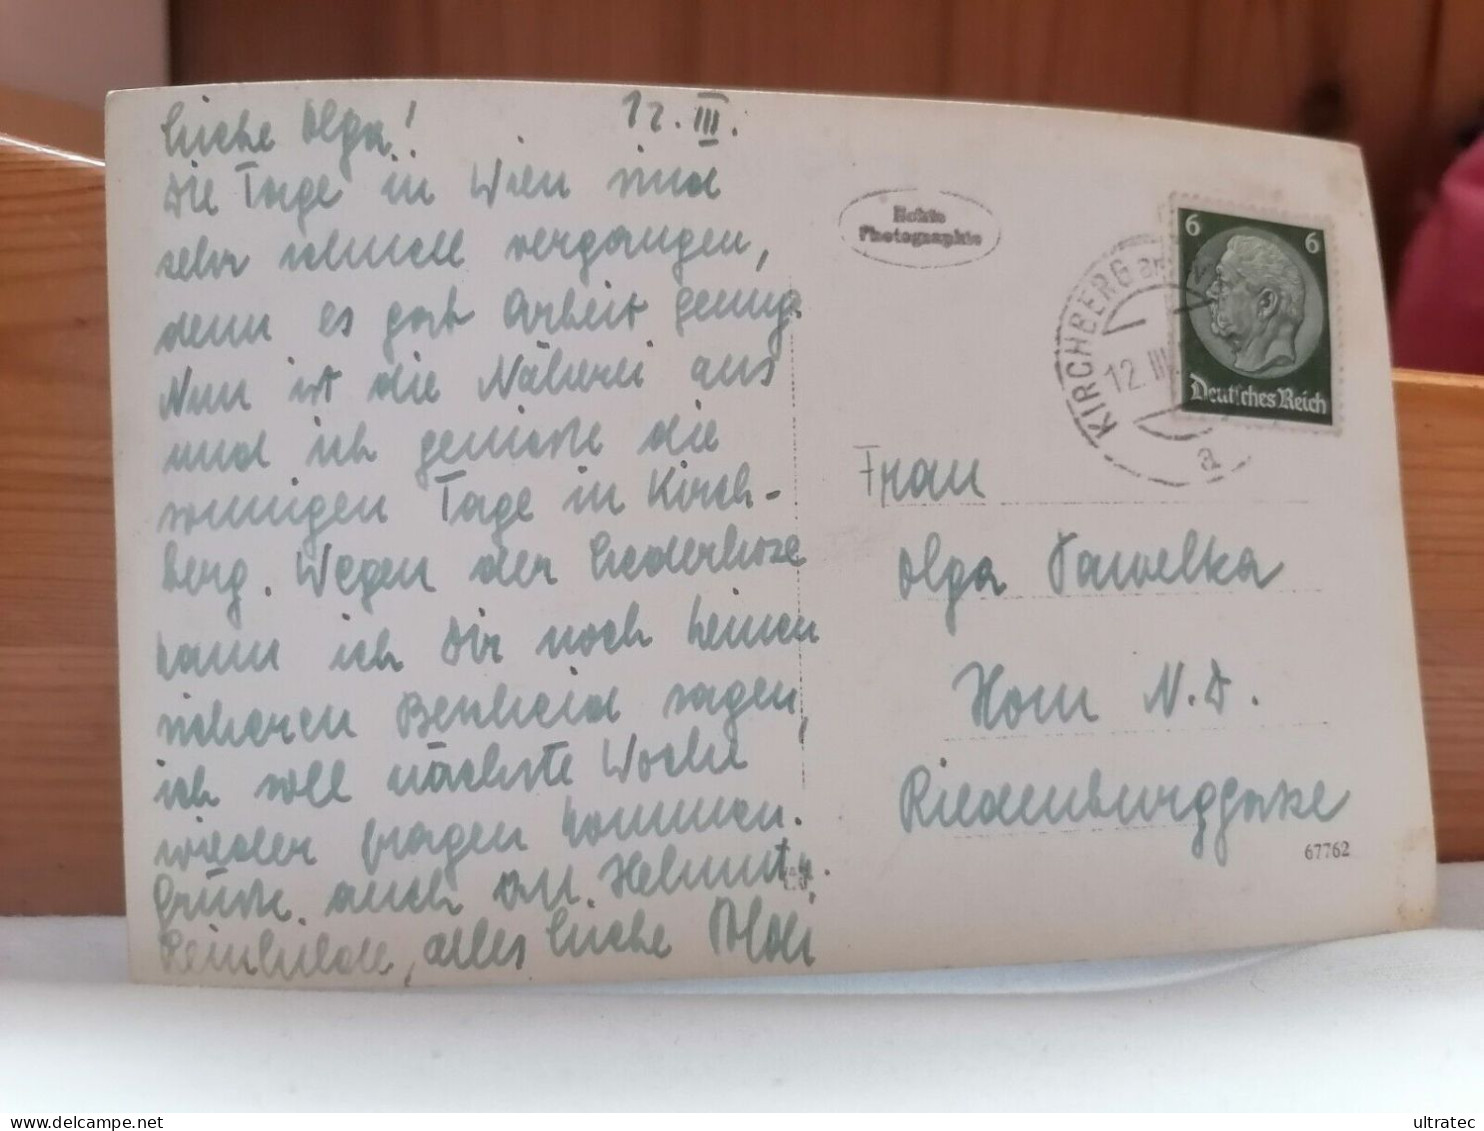 Liebe Olga! 12. III.
Die Tage in Wien sind
sehr schnell vergangen,
denn es gab Arbeit genug.
Nun ist die Näherei aus
und ich genieße die
sonnigen Tage in Kirch-
berg. Wegen der Lederhose
kann ich Dir noch keinen
sicheren Bescheid sagen,
ich soll nächste Woche
wieder fragen kommen.
Grüße auch an Helmut u.
Reinhilde, alles Liebe
Echte
Photographie
KIRCHBERG am
12. III
a
6 6
Deutsches Reich
Frau
Olga Pawelka
Horn N.D.
Riedenburggasse
67762
ultratec